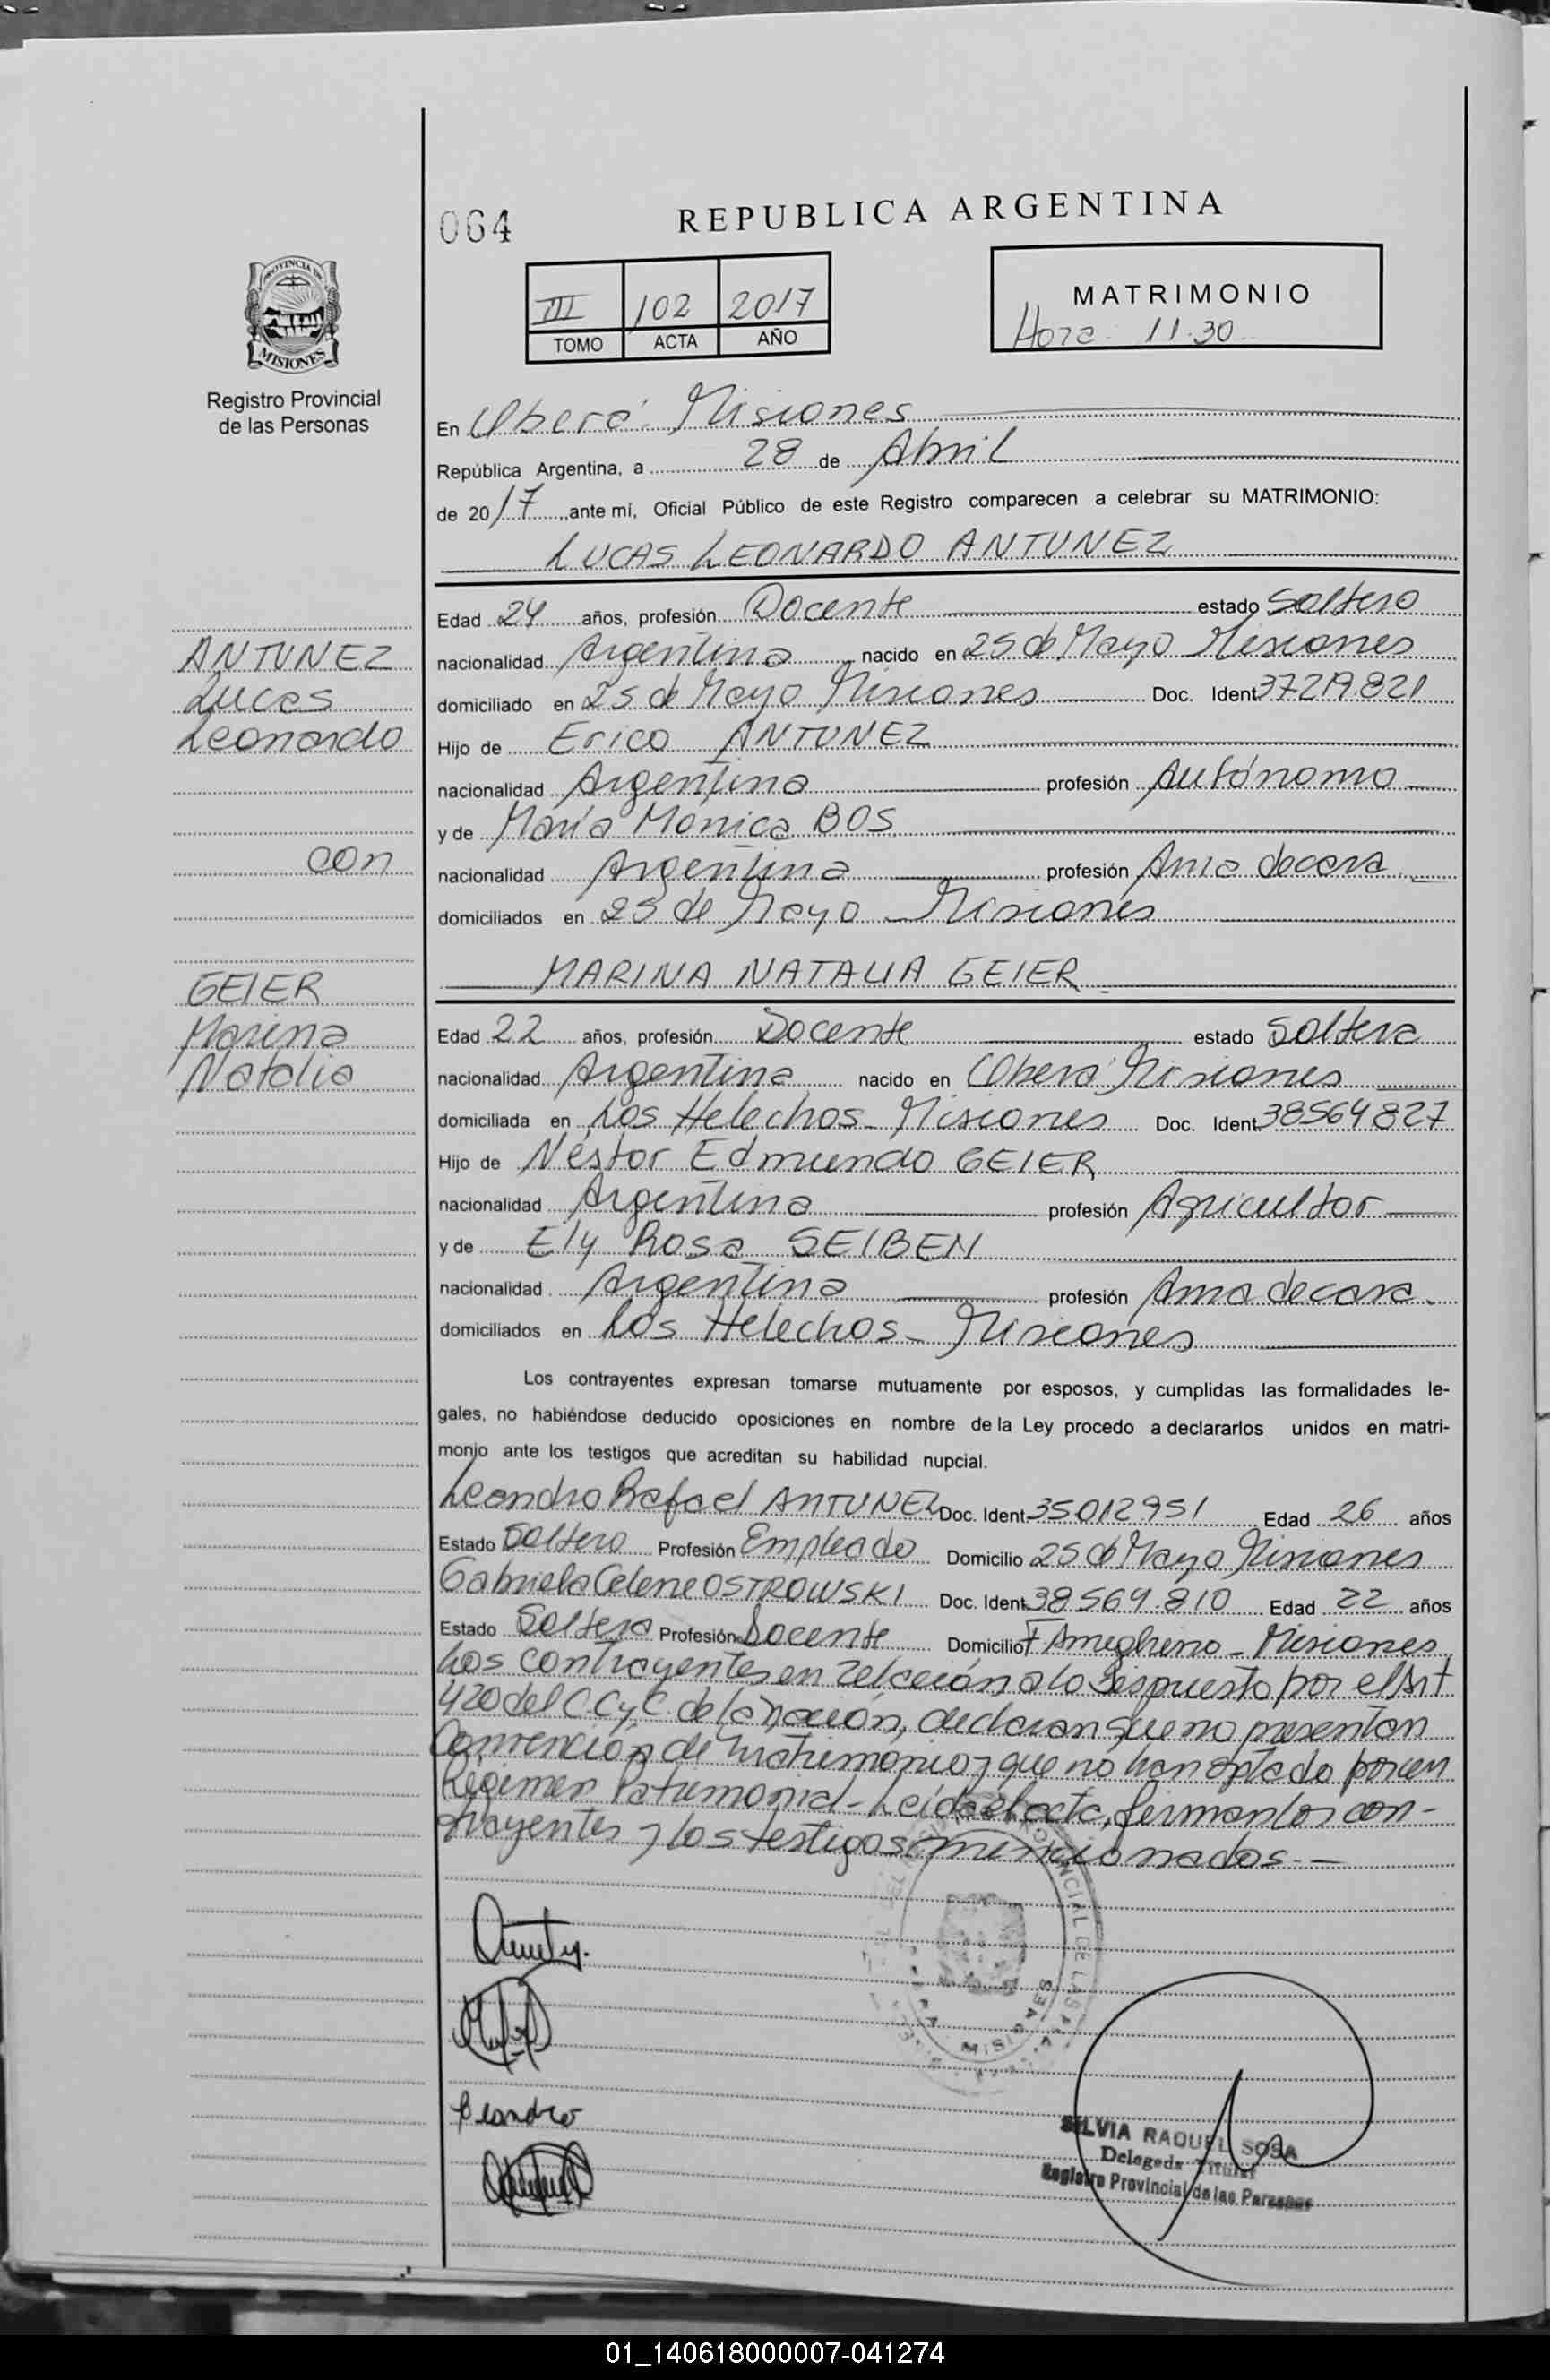 064
REPUBLICA ARGENTINA
III 102 2017
TOMO ACTA AÑO
MATRIMONIO
Hora 11.30
PROVINCIA DE
MISIONES
Registro Provincial
de las Personas
En Oberá. Misiones
República Argentina, a 28 de Abril
de 2017, ante mí, Oficial Público de este Registro comparecen a celebrar su MATRIMONIO:
LUCAS LEONARDO ANTUNEZ
Edad 24 años, profesión Docente estado Soltero
ANTUNEZ
nacionalidad Argentina nacido en 25 de Mayo Misiones
Lucas
domiciliado en 25 de Mayo Misiones Doc. Ident. 37219821
Leonardo
Hijo de Erico ANTUNEZ
nacionalidad Argentina profesión Autónomo
y de María Monica BOS
con
nacionalidad Argentina profesión Ama de casa
domiciliados en 25 de Mayo Misiones
MARINA NATALIA GEIER
GEIER
Marina
Edad 22 años, profesión Docente estado Soltera
Natalia
nacionalidad Argentina nacido en Oberá Misiones
domiciliada en Los Helechos - Misiones Doc. Ident. 38564827
Hijo de Néstor Edmundo GEIER
nacionalidad Argentina profesión Agricultor
y de Ely Rosa SEIBEN
nacionalidad Argentina profesión Ama de casa.
domiciliados en Los Helechos - Misiones
Los contrayentes expresan tomarse mutuamente por esposos, y cumplidas las formalidades le-
gales, no habiéndose deducido oposiciones en nombre de la Ley procedo a declararlos unidos en matri-
monio ante los testigos que acreditan su habilidad nupcial.
Leandro Rafael ANTUNEZ Doc. Ident. 35012951 Edad 26 años
Estado Soltero Profesión Empleado Domicilio 25 de Mayo Misiones
Gabriela Celene OSTROWSKI Doc. Ident. 38569.810 Edad 22 años
Estado Soltera Profesión Docente Domicilio F Ameghino - Misiones
Los contrayentes en relación a lo dispuesto por el Art
420 del C.C y C. de la Nación, declaran que no presentan
Convención de matrimonio y que no han optado por un
Régimen Patrimonial - Leída el acta, firman los con-
trayentes y los testigos mencionados. -
Leandro
SILVIA RAQUEL SOSA
Delegada Titular
Registro Provincial de las Personas
01_140618000007-041274